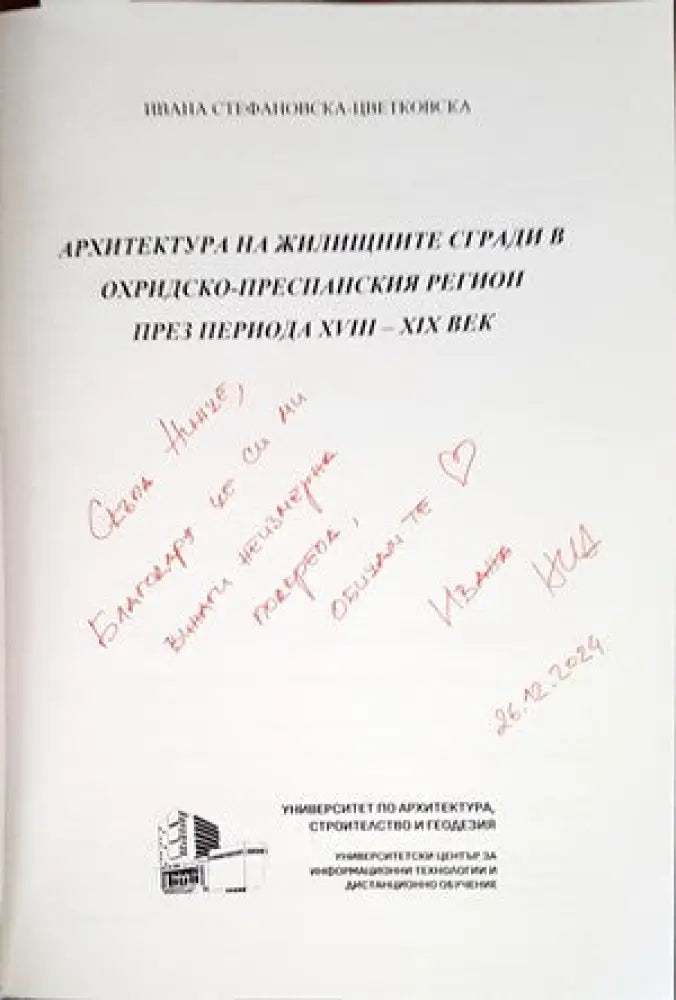 ИВАНА СТЕФАНОВСКА-ЦВЕТКОВСКА
АРХИТЕКТУРА НА ЖИЛИЩНИТЕ СГРАДИ В
ОХРИДСКО-ПРЕСПАНСКИЯ РЕГИОН
ПРЕЗ ПЕРИОДА XVIII – XIX ВЕК
Скъпа
Благодаря че си ми
винаги неизмерна
подкрепа,
обичам те ♡
Ивана
26.12.2024
УНИВЕРСИТЕТ ПО АРХИТЕКТУРА,
СТРОИТЕЛСТВО И ГЕОДЕЗИЯ
УНИВЕРСИТЕТСКИ ЦЕНТЪР ЗА
ИНФОРМАЦИОННИ ТЕХНОЛОГИИ И
ДИСТАНЦИОННО ОБУЧЕНИЕ